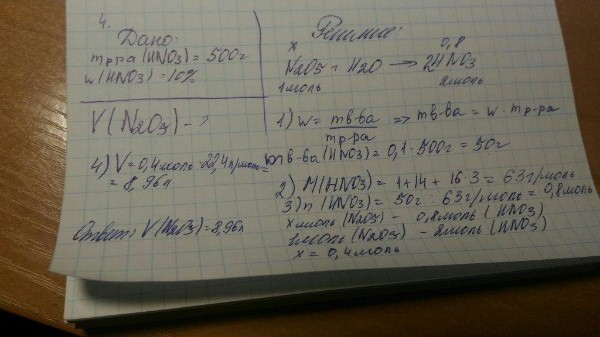 4.
Дано:
mр-ра (HNO3) = 500г
w(HNO3) = 10%
V(N2O3) - ?
4) V = 0,4моль · 22,4л/моль =
= 8,96л
Ответ: V(N2O3) = 8,96л
Решение:
x 0,8
N2O5 + H2O → 2HNO3
1моль 2моль
1) w = mв-ва / mр-ра => mв-ва = w · mр-ра
mв-ва (HNO3) = 0,1 · 500г = 50г
2) M(HNO3) = 1+14 + 16·3 = 63г/моль
3) n (HNO3) = 50г : 63г/моль = 0,8моль
x моль (N2O3) - 0,8моль (HNO3)
1моль (N2O3) - 2моль (HNO3)
x = 0,4моль